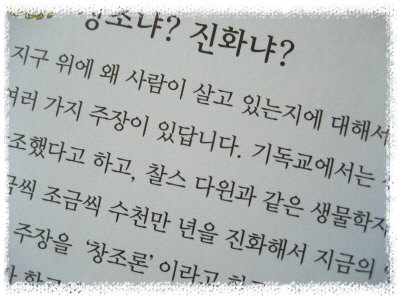 창조냐? 진화냐?
지구 위에 왜 사람이 살고 있는지에 대해서
여러 가지 주장이 있답니다. 기독교에서는
조했다고 하고, 찰스 다윈과 같은 생물학자
금씩 조금씩 수천만 년을 진화해서 지금의
주장을 ‘창조론’ 이라고 하고